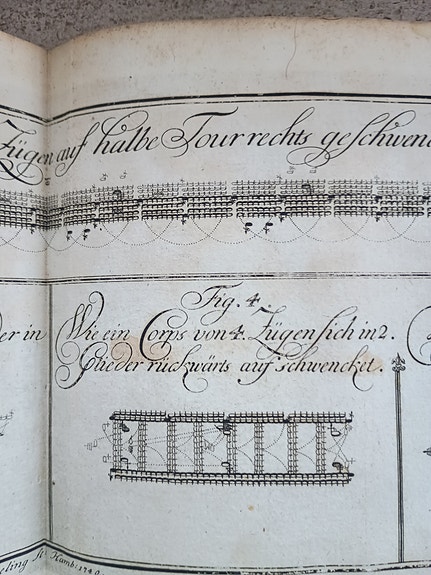 Zügen auf halbe Tour rechts geschwen
Fig. 4.
der in
Wie ein Corps von 4. Zügen sich in 2.
Glieder rückwärts auf schwencket.
eling Sc. Hamb. 174